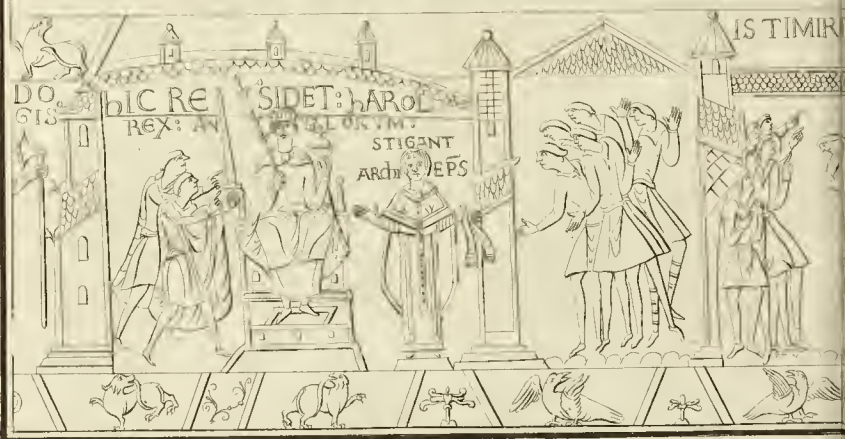 DO
GIS
hIC RE SIDET: hAROL
REX: AN GLORVM:
STIGANT
ARChI EPS̄
IS TIMIR